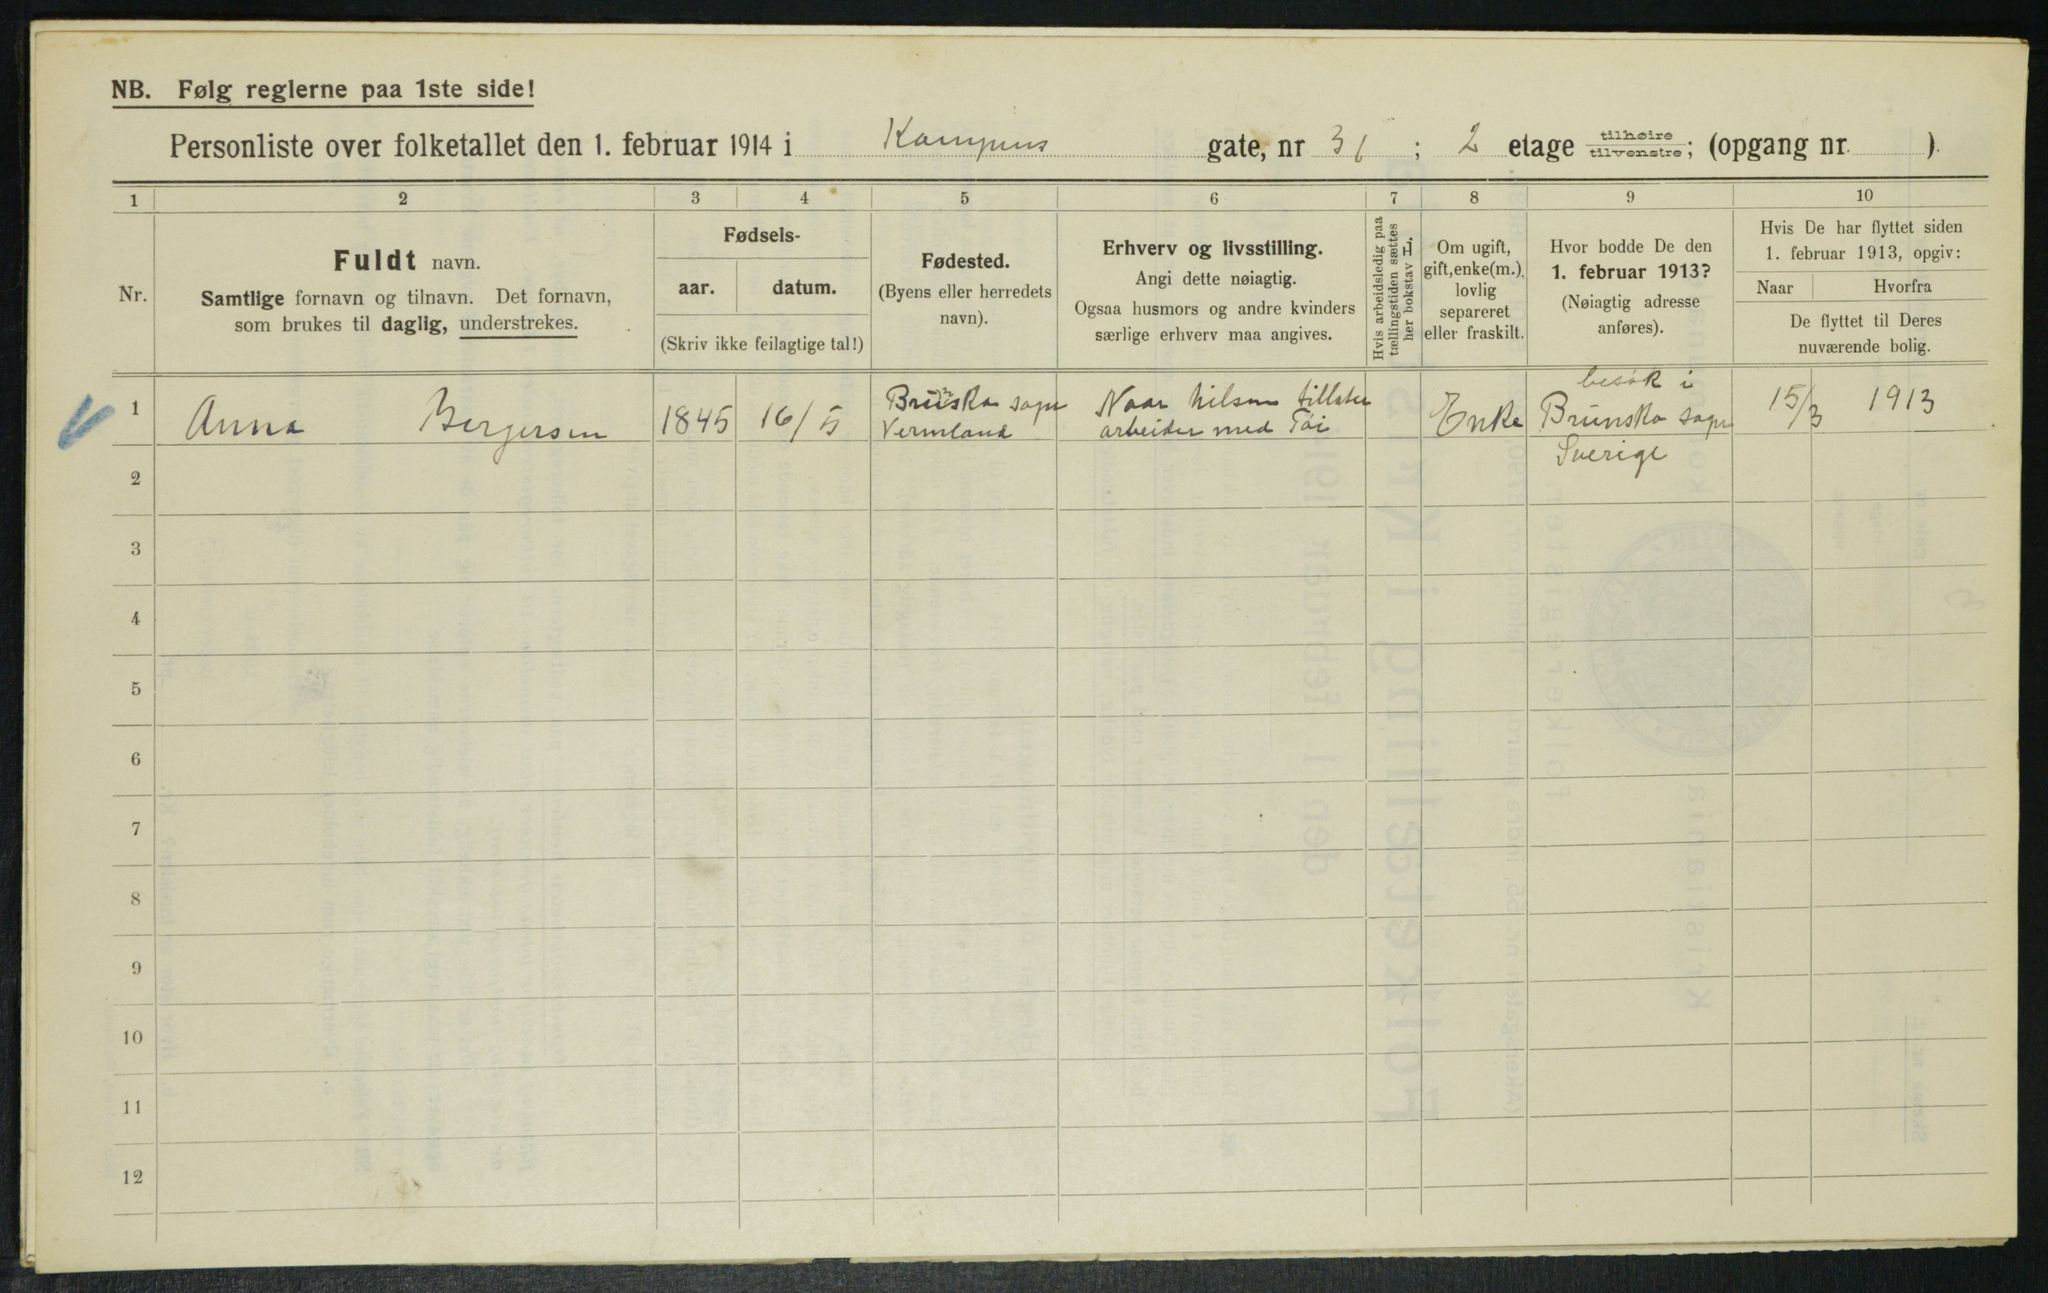 NB. Følg reglerne paa 1ste side!
Personliste over folketallet den 1. februar 1914 i Kampens gate, nr 31 ; 2 etage tilhøire tilvenstre; (opgang nr. ).
1 2 3 4 5 6 7 8 9 10
Nr.
Fuldt navn.
Samtlige fornavn og tilnavn. Det fornavn,
som brukes til daglig, understrekes.
Fødsels-
aar. datum.
(Skriv ikke feilagtige tal!)
Fødested.
(Byens eller herredets
navn).
Erhverv og livsstilling.
Angi dette nøiagtig.
Ogsaa husmors og andre kvinders
særlige erhverv maa angives.
Hvis arbeidsledig paa
tællingstiden sættes
her bokstav L.
Om ugift,
gift, enke(m.),
lovlig
separeret
eller fraskilt.
Hvor bodde De den
1. februar 1913?
(Nøiagtig adresse
anføres).
Hvis De har flyttet siden
1. februar 1913, opgiv:
Naar Hvorfra
De flyttet til Deres
nuværende bolig.
1 Anna Bergersen 1845 16/5
Brunsko sogn
Vermland
Naar hilsen tillater
arbeider med Tøi
Enke
besøk i
Brunsko sogn
Sverige
15/3 1913
2
3
4
5
6
7
8
9
10
11
12